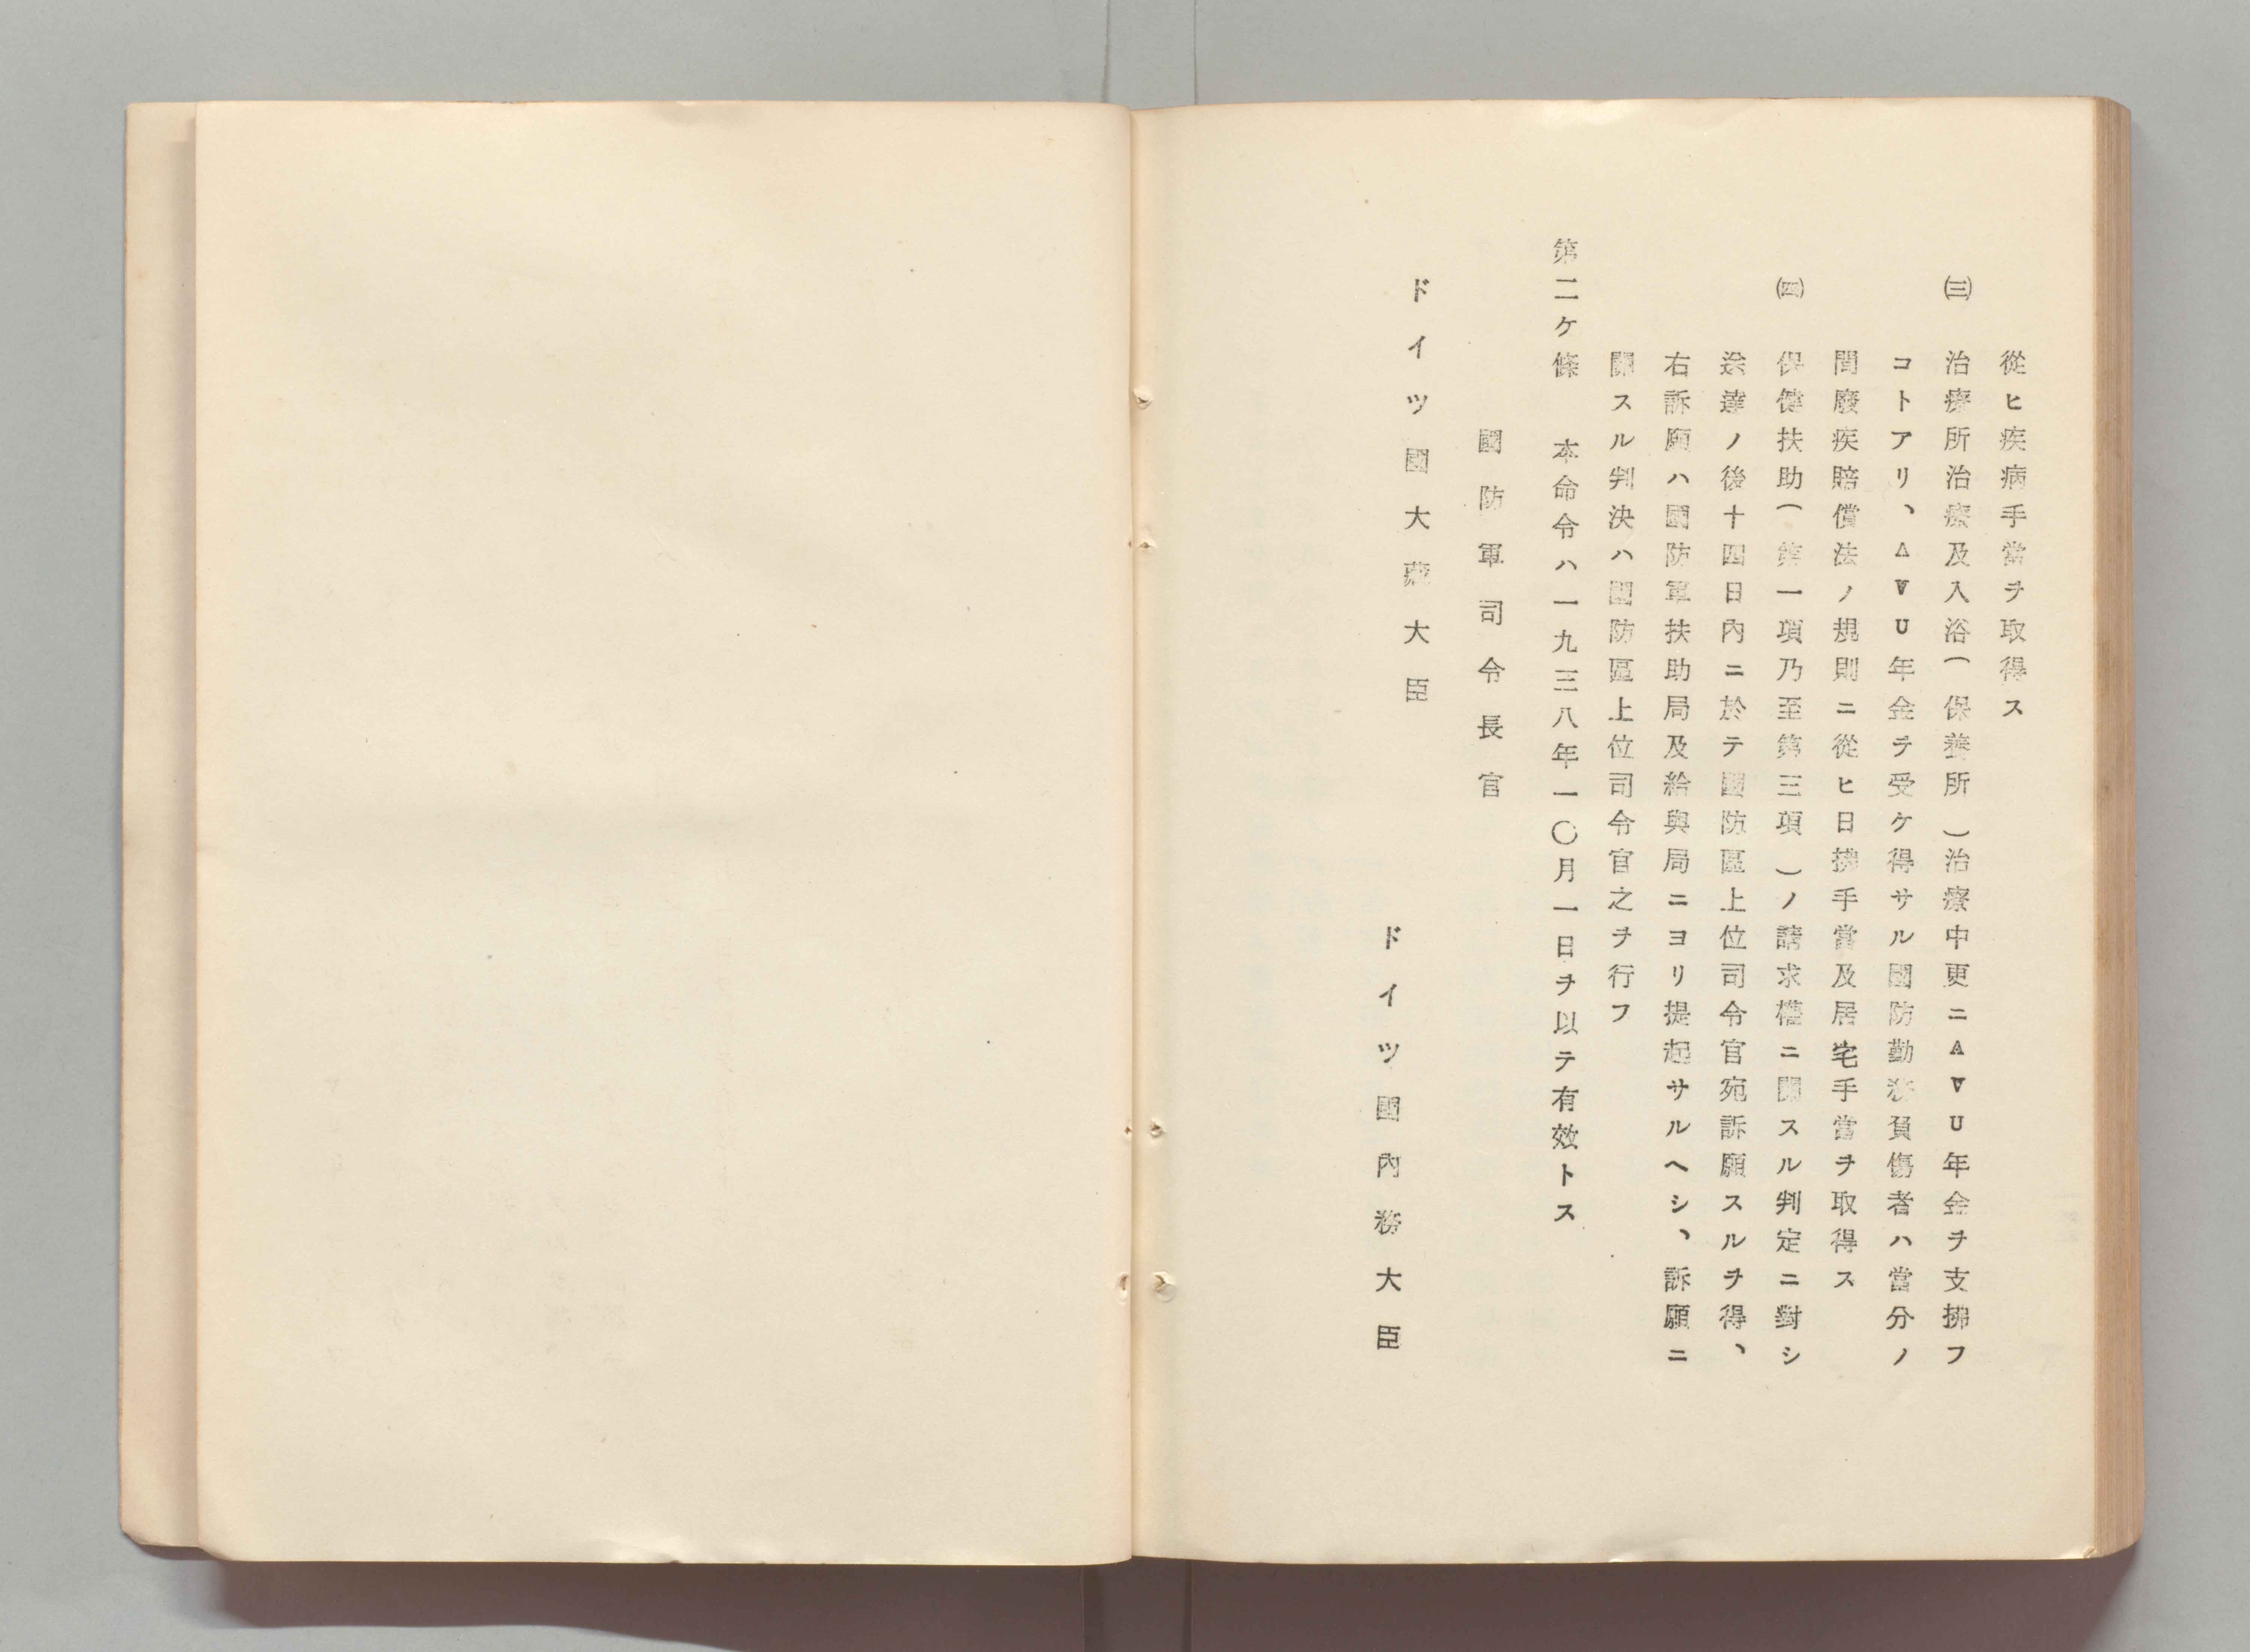 從ヒ疾病手當ヲ取得ス
㈢ 治療所治療及入浴(保養所)治療中更ニAVU年金ヲ支拂フ
コトアリ、AVU年金ヲ受ケ得サル國防勤務負傷者ハ當分ノ
間廢疾賠償法ノ規則ニ從ヒ日拂手當及居宅手當ヲ取得ス
㈣ 保健扶助(第一項乃至第三項)ノ請求權ニ關スル判定ニ對シ
送達ノ後十四日內ニ於テ國防區上位司令官宛訴願スルヲ得、
右訴願ハ國防軍扶助局及給與局ニヨリ提起サルヘシ、訴願ニ
關スル判決ハ國防區上位司令官之ヲ行フ
第二ケ條 本命令ハ一九三八年一〇月一日ヲ以テ有效トス
國防軍司令長官
ドイツ國大藏大臣
ドイツ國內務大臣